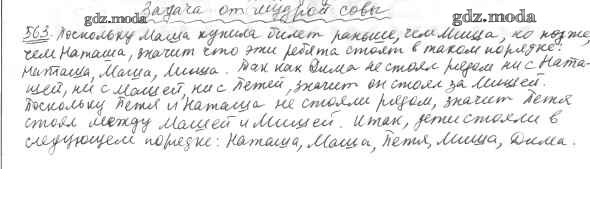 Задача от мудрой совы
gdz.moda gdz.moda gdz.moda
563. Поскольку Маша купила билет раньше, чем Миша, но позже,
чем Наташа, значит что эти ребята стоят в таком порядке:
Наташа, Маша, Миша. Так как Дима не стоял рядом ни с Ната-
шей, ни с Машей, ни с Петей, значит он стоял за Мишей.
Поскольку Петя и Наташа не стояли рядом, значит Петя
стоял между Машей и Мишей. Итак, дети стояли в
следующем порядке: Наташа, Маша, Петя, Миша, Дима.